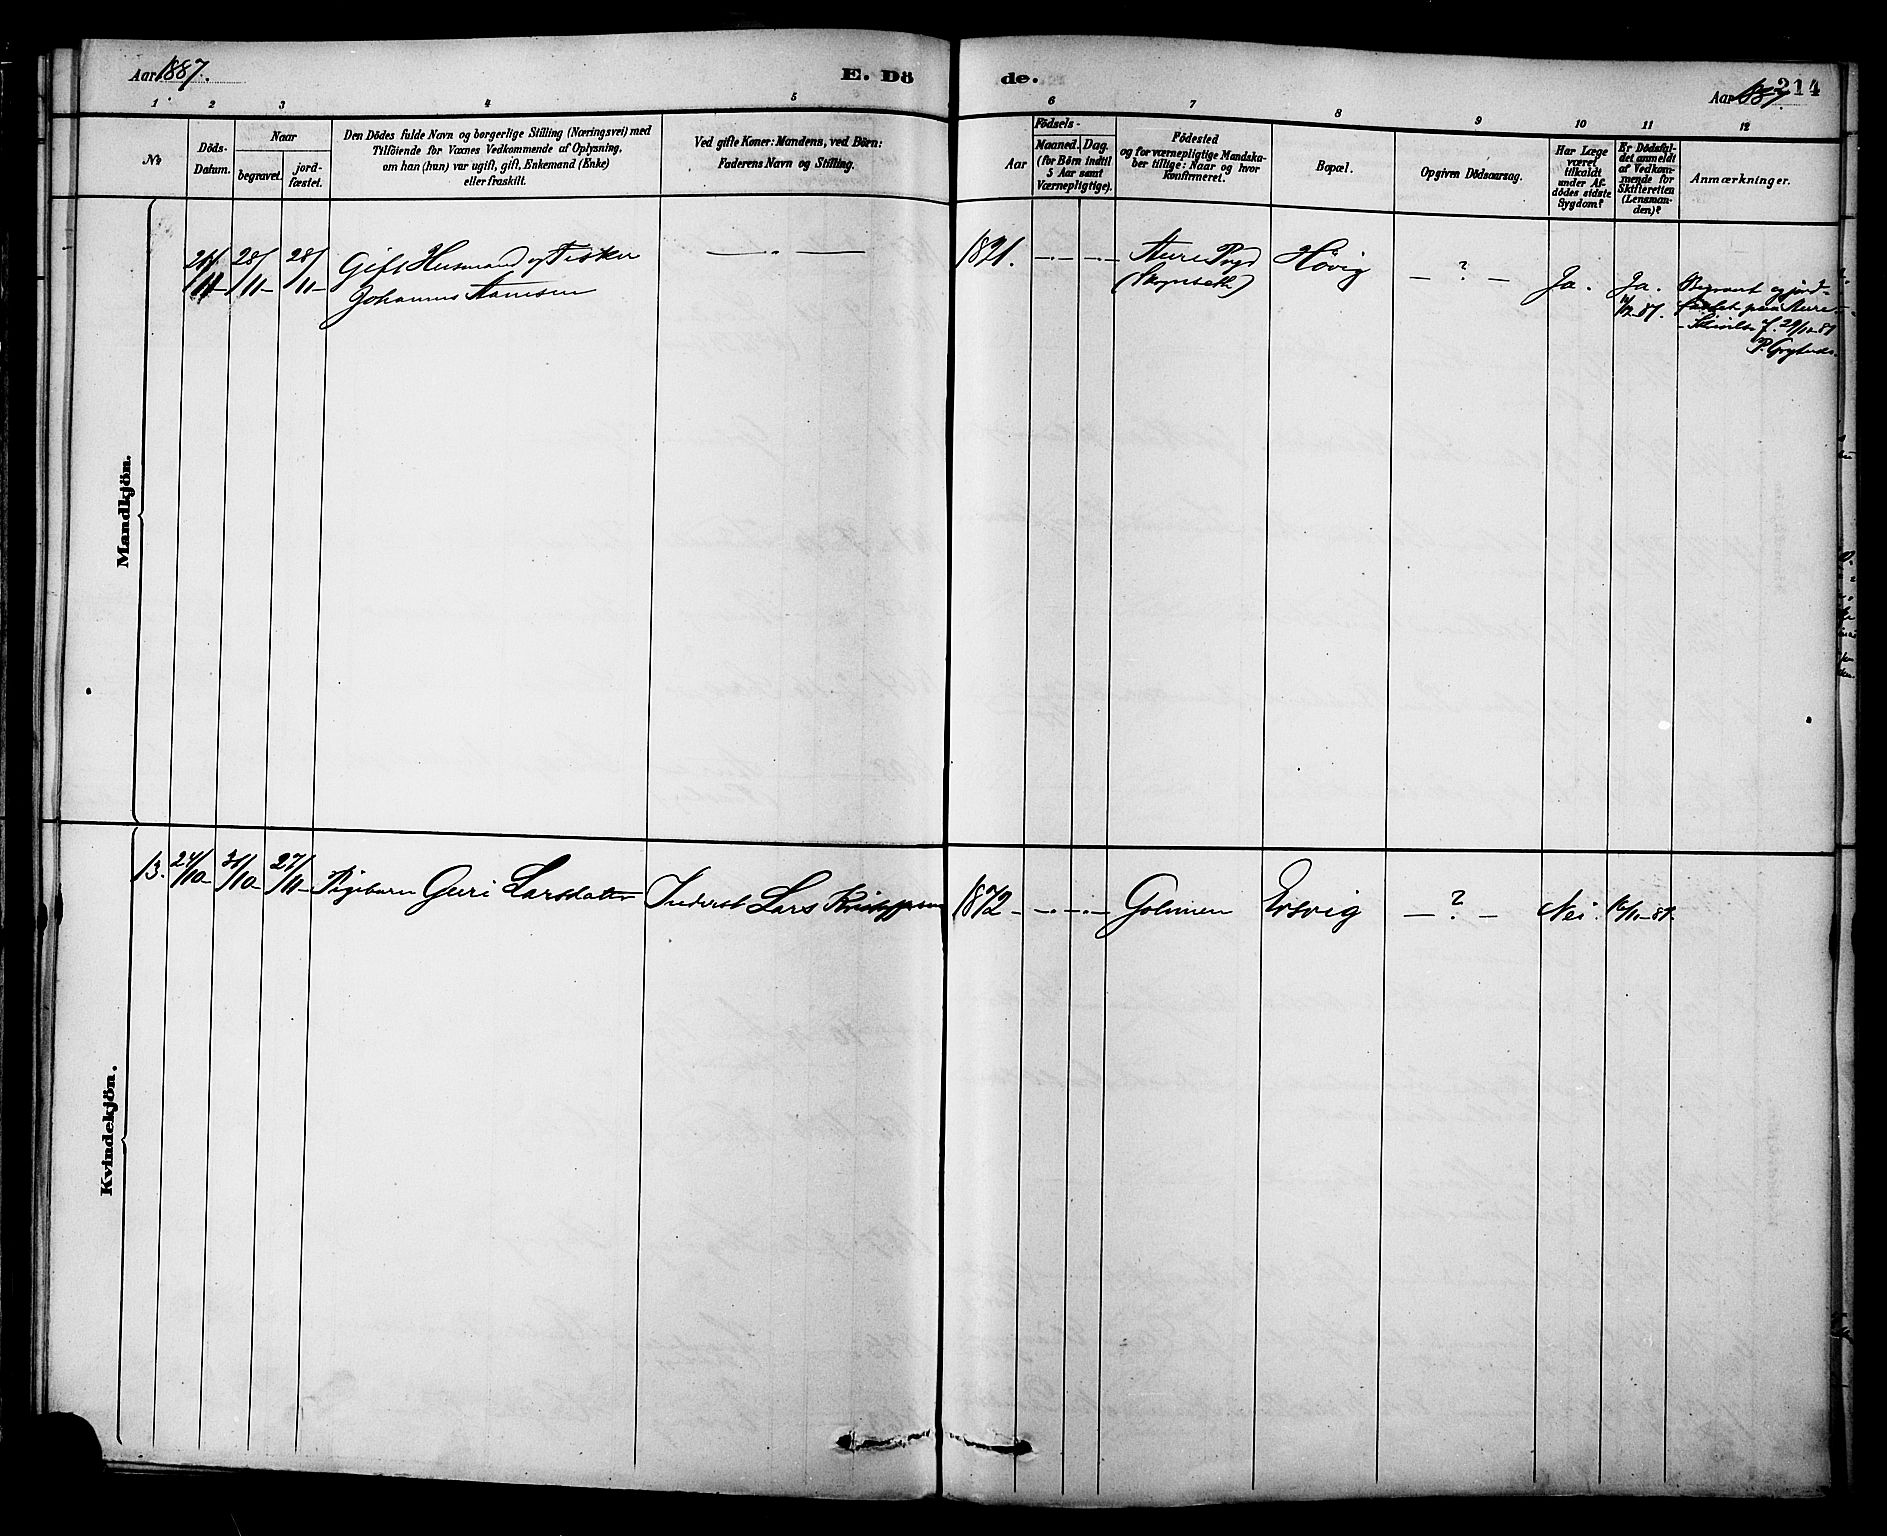 Aar 1887.
E. Dö
de.
Aar 1887.
214
1
2
3
4
5
6
7
8
9
10
11
12
No
Döds-
Datum.
Naar
begravet.
jord-
fæstet.
Den Dödes fulde Navn og borgerlige Stilling (Næringsvei) med
Tilföiende for Voxnes Vedkommende af Oplysning,
om han (hun) var ugift, gift, Enkemand (Enke)
eller fraskilt.
Ved gifte Koner: Mandens, ved Börn:
Faderens Navn og Stilling.
Aar
Födsels-
Maaned.
Dag.
(for Börn indtil
5 Aar samt
Værnepligtige).
Födested
og for værnepligtige Mandska-
ber tillige: Naar og hvor
konfirmeret.
Bopæl.
Opgiven Dödsaarsag.
Har Læge
været
tilkaldt
under Af-
dödes sidste
Sygdom?
Er Dödsfal-
det anmeldt
af Vedkom-
mende for
Skifteretten
(Lensman-
den)?
Anmærkninger.
Mandkjön.
28/11
28/11
Gift Husmand og Fisker
Johannes
1821.
Aure Prgd
Høvig
- ? -
Ja.
Ja.
Begravet og jord-
fæstet paa Aure
29/12-87
P.
Kvindekjön.
13.
24/10
27/11
Pigebarn Guri Larsdatter
Inderst Lars
1872
Golmen
Ersvig
- ? -
Nei.